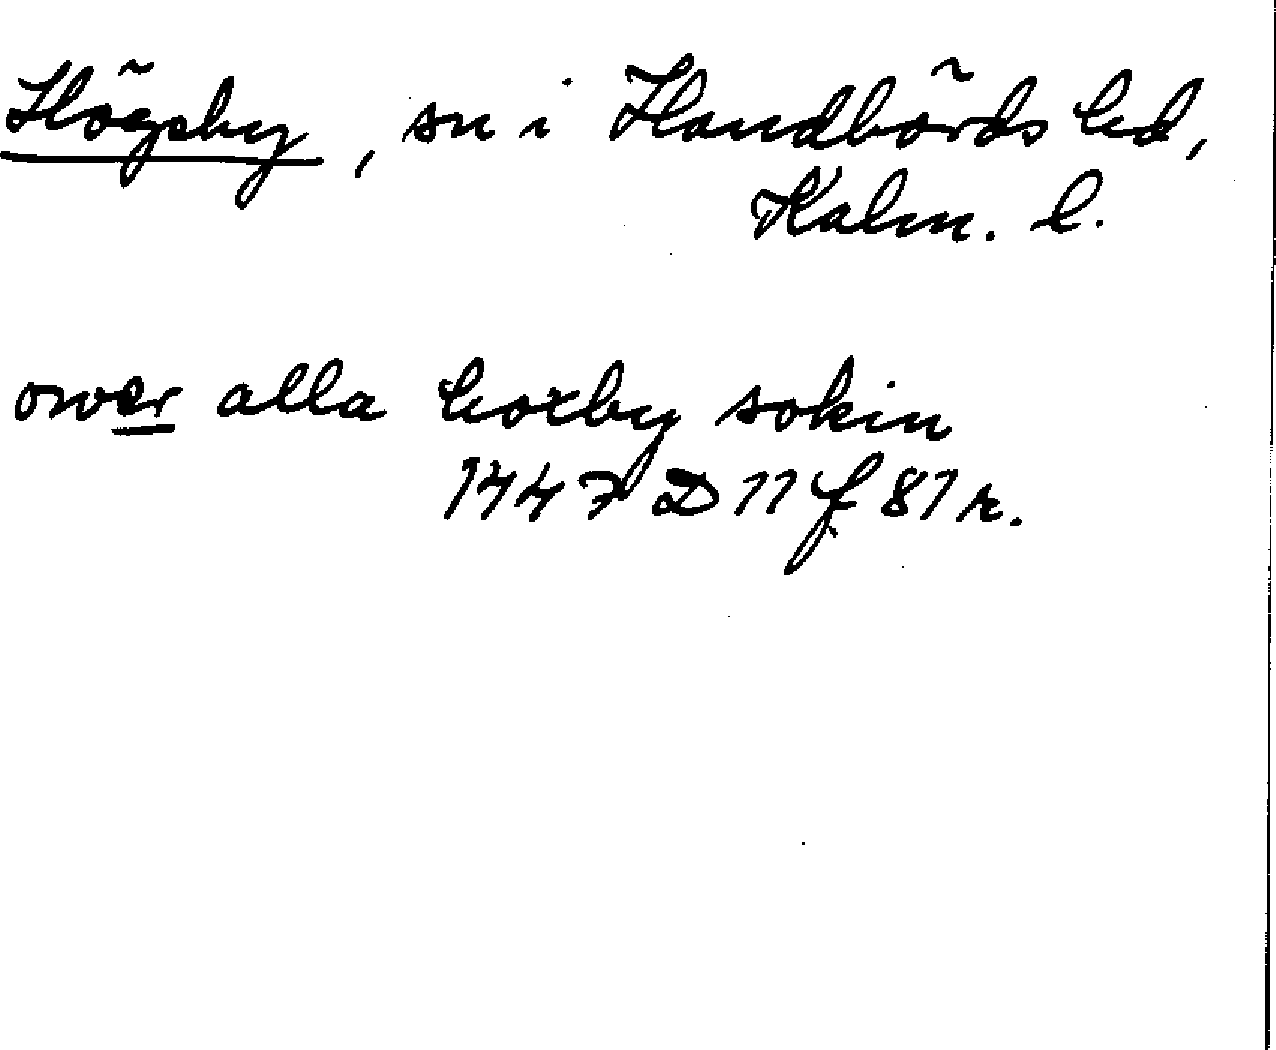 Högsby, sn i Handbörds hd,
Kalm. l.
ower alla hoxby sokin
1447 D 11 f 81 r.